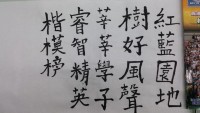 紅藍園地
樹好風聲
莘莘學子
睿智精英
楷模榜